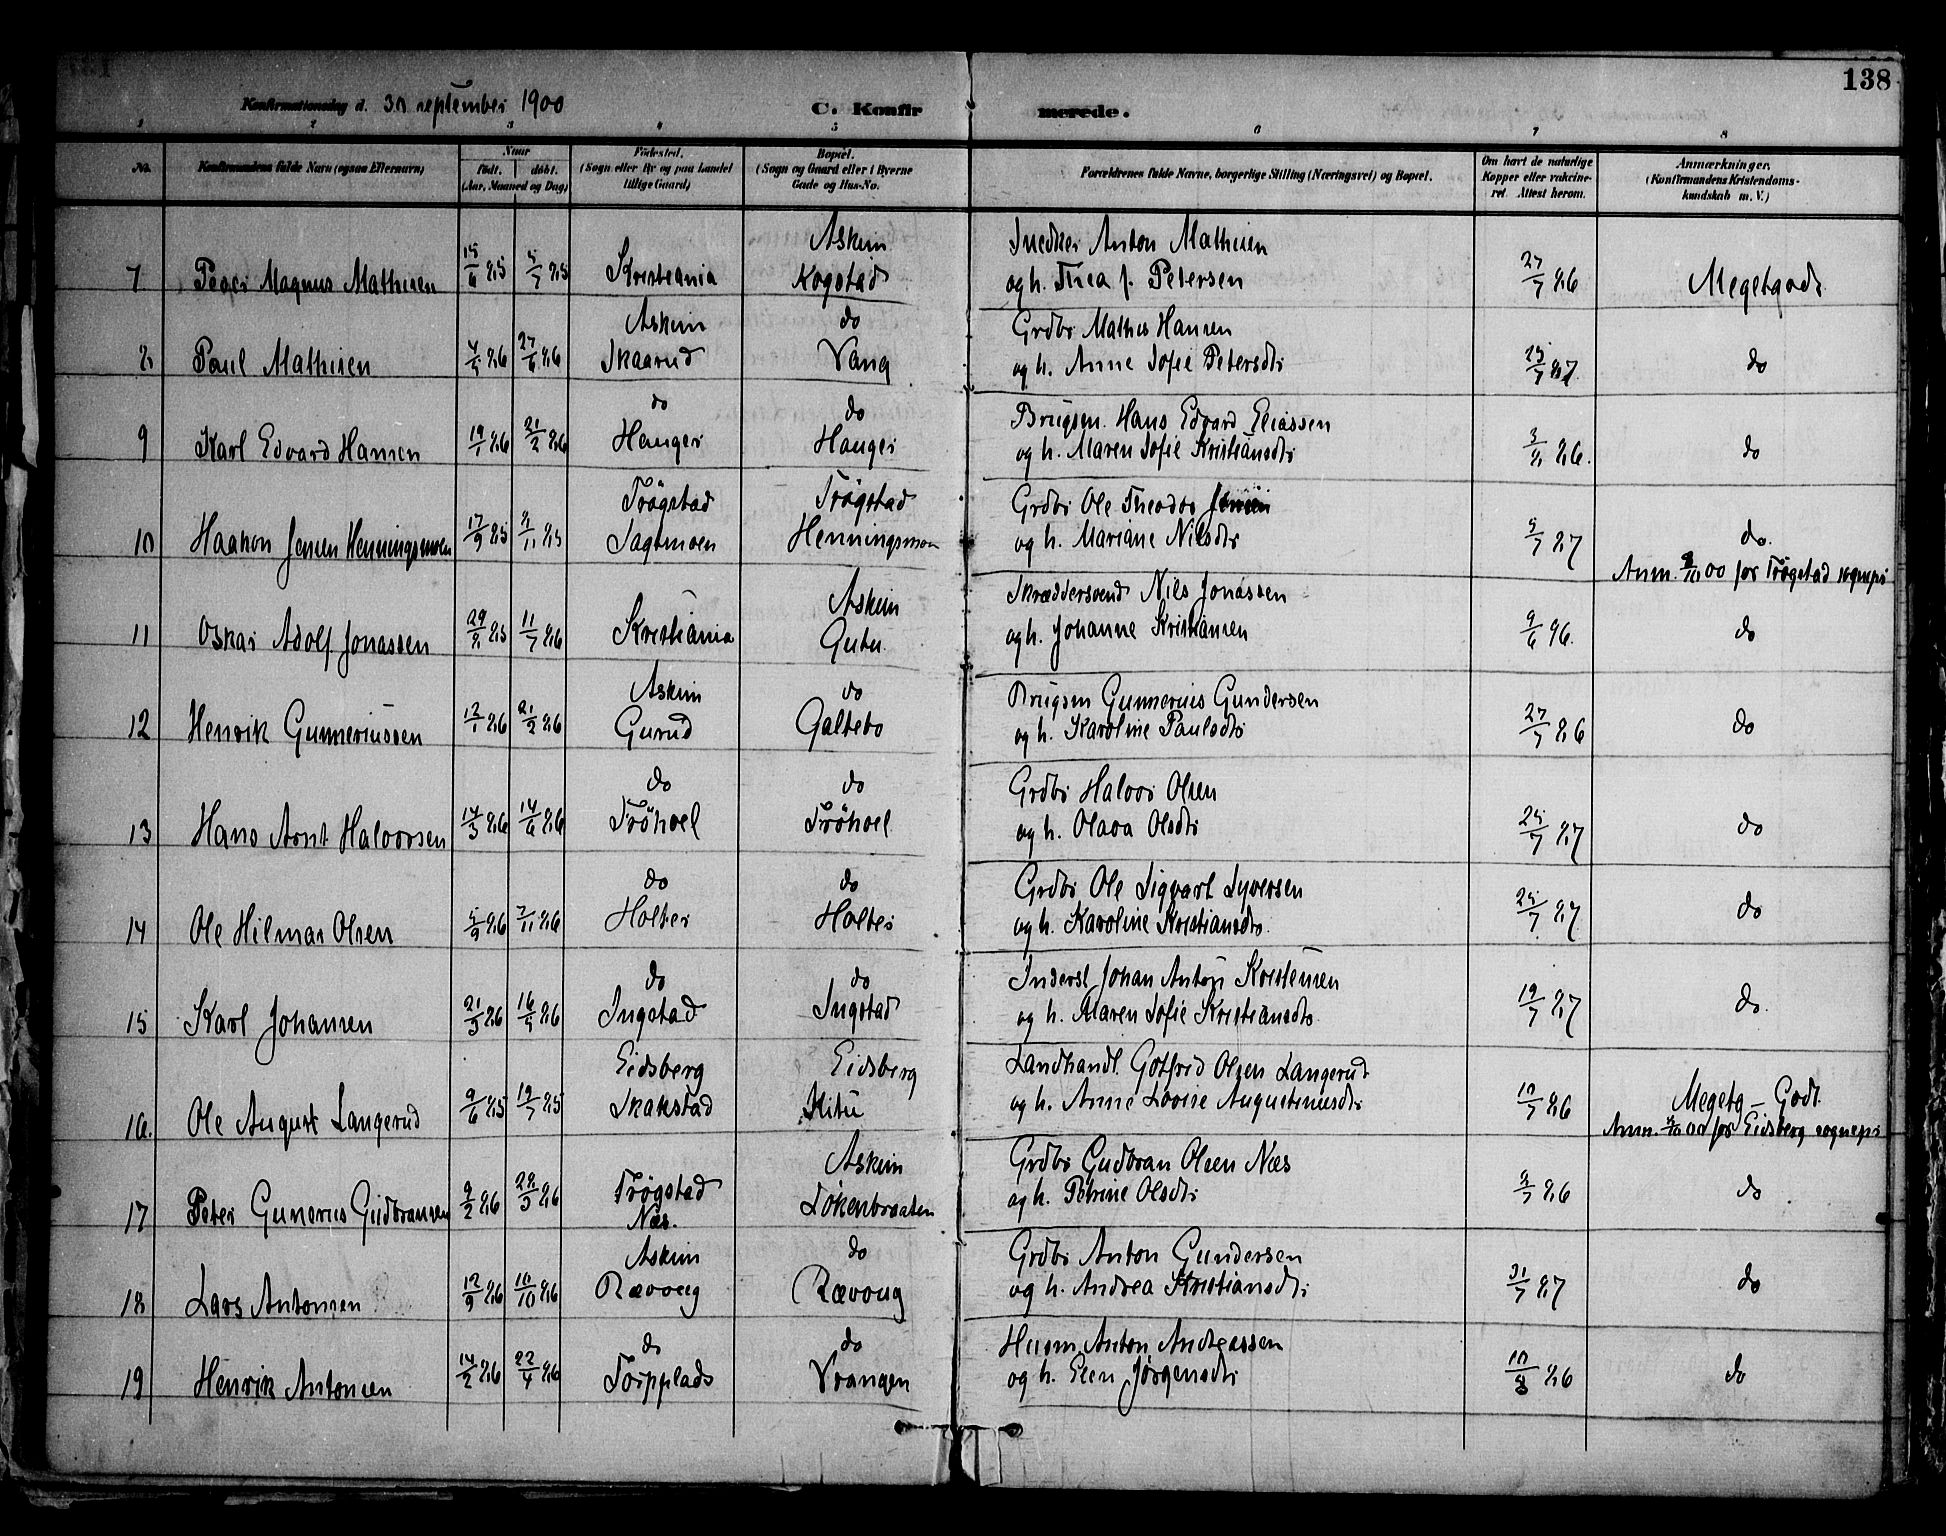 138
Konfirmationsdag d. 30 september 1900 C. Konfirmerede.
1 2 3 4 5 6 7 8
No. Konfirmandens fulde Navn (ogsaa Efternavn) Naar født. døbt. (Aar, Maaned og Dag) Fødested. (Sogn eller By og paa Landet tillige Gaard) Bopæl. (Sogn og Gaard eller i Byerne Gade og Hus-No. Forældrenes fulde Navne, borgerlige Stilling (Næringsvei) og Bopæl. Om havt de naturlige Kopper eller vakcineret. Attest herom. Anmærkninger. (Konfirmandens Kristendomskundskab m. V.)
Askim Snedker Anton Mathisen
7 Peder Magnus Mathisen 15/6 85 5/7 85 Kristiania Kogstad og h. Thea f. Petersen 27/7 86 Megetgodt
Askim do Grdbr Mathis Hansen
8 Paul Mathisen 27/6 86 Skaarud Vang og h. Anne Sofie Petersdtr 25/7 87 do
do do Brugsm. Hans Edvard Eliassen
9 Karl Edvard Hansen 19/1 86 21/2 86 Hauger Hauger og h. Maren Sofie Kristiansdtr 3/8 86. do
Trøgstad Trøgstad Grdbr Ole Theodor Jensen
10 Haakon Jensen Henningsmoen 17/9 85 8/11 85 Sagtmoen Henningsmoen og h. Mariane Nilsdtr 5/7 87 do.
Anm. 8/10 00 for Trøgstad sognepr
Askim Skræddersvend Nils Jonassen
11 Oskar Adolf Jonassen 29/8 85 11/7 86 Kristiania Gutu og h. Johanne Kristiansen 9/6 96. do
Askim do Brugsm Gunnerius Gundersen
12 Henrik Gunneriussen 12/1 86 21/2 86 Gurud Galtebo og h. Karoline Paulsdtr 27/7 86 do
do do Grdbr Halvor Olsen
13 Hans Arnt Halvorsen 14/3 86 14/6 86 Trøhoel Trøhoel og h. Olava Olsdtr 25/7 87 do
do do Grdbr Ole Sigvart Syversen
14 Ole Hilmar Olsen 5/9 86 7/11 86 Holter Holter og h. Karoline Kristiansdtr. 25/7 87 do
do do Inderst Johan Anton Kristensen
15 Karl Johansen 21/3 86 16/5 86 Ingstad Ingstad og h. Maren Sofie Kristiansdtr. 19/7 87 do
Eidsberg Eidsberg Landhandl. Gotfred Olsen Langerud
16. Ole August Langerud 9/6 85 19/7 85 Skakstad Hitu og h. Anne Lovise Augustinusdtr 10/7 86 Megetg – Godt.
Anm. 00 for Eidsberg sognepr
Askim Grdbr Gudbran Olsen Næs
17 Peter Gunerius Gudbransen 9/2 86 28/3 86 Trøgstad Løkenbraaten og h. Petrine Olsdtr 8/7 86 do
Næs.
Askim do Grdbr Anton Gundersen
18 Lars Antonsen 12/9 86 10/10 86 Rævoug Rævoug og h. Andrea Kristiansdtr. 31/7 87 do
do do Husm. Anton Andreassen
19 Henrik Antonsen 14/2 86 22/4 86 Torpplads Vrangen og h. Elen Jørgensdtr 10/8 86 do